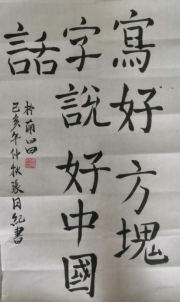 寫好方塊
字說好中國
話
己亥年仲秋張日紀書